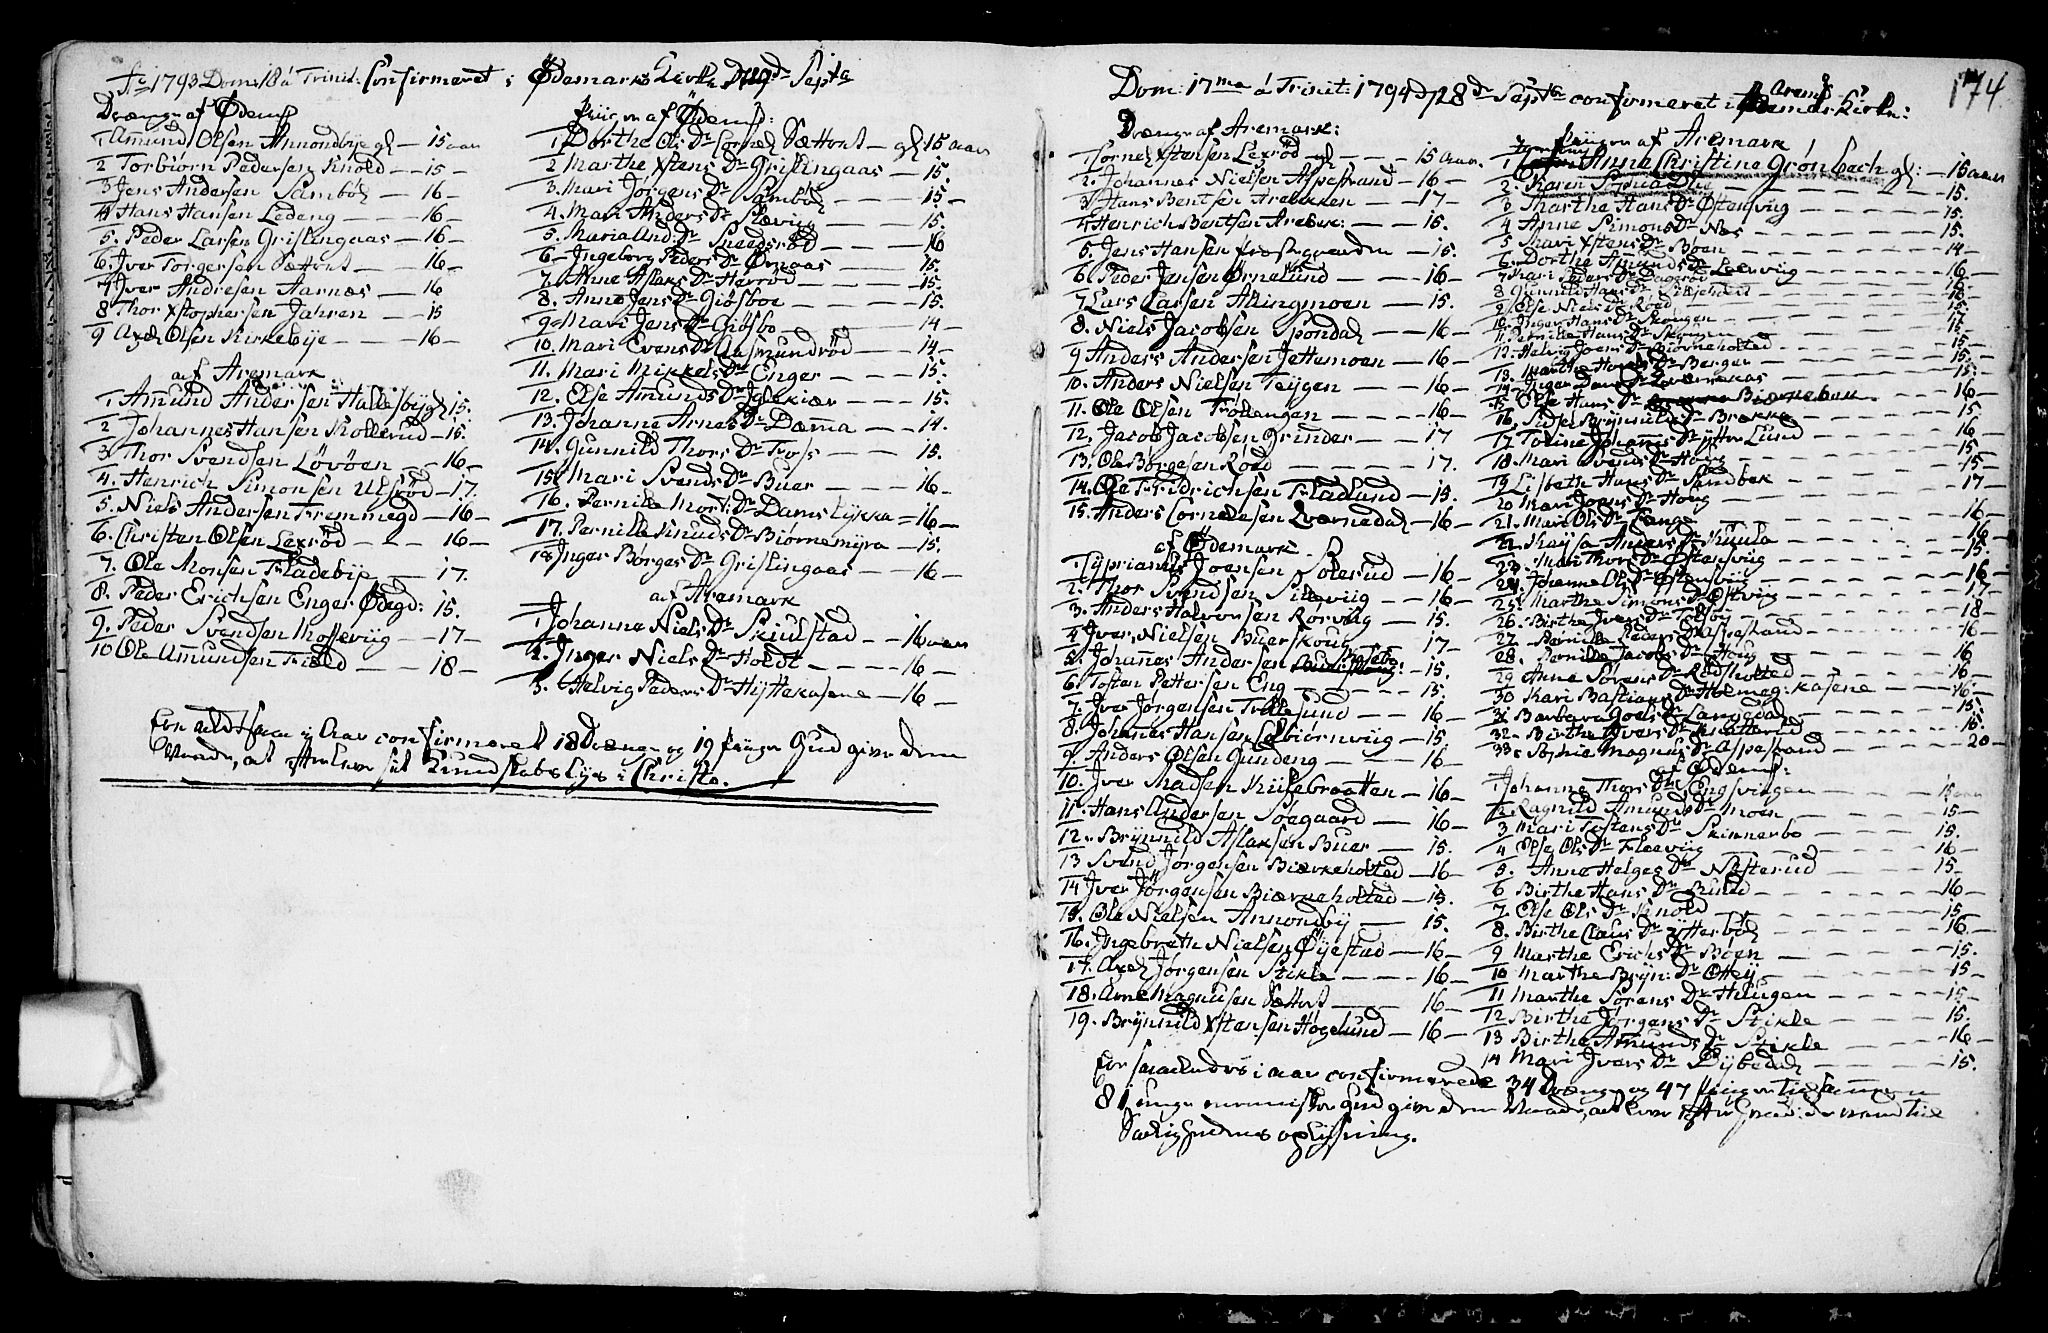 1793 Dom: 18 á Trinit: Confirmeret i Ødemarks Kirke Sept
Drænge af Ødem:
1 Amund Olsen Annondbye gl — 15 aar
2 Torbiørn Pedersen Knold — 15 —
3 Jens Andersen Sambøl — 16 —
4 Hans Hansen Ledeng — 16 —
5. Peder Larsen Grislingaas — 16 —
6. Iver Torgersen Sæthret — 16 —
7 Iver Andresen Aarnæs — 16
8 Thor Xstophersen Jahren — 15
9 Axel Olsen Kirkebÿe — 16 —
af Aremark
1 Amund Andersen Hallesbÿ gl 15.
2 Johannes Hansen Kollerud — 15.
3 Thor Svendsen Løvøen — 16 —
4. Henrich Simonsen Ulsrød — 17.
5. Niels Andersen Fremmegd — 16 —
6. Christen Olsen Lexrød — 16 —
7. Ole Monsen Fladebÿe — 17.
8. Peder Erichsen Enger Ødegd: 15.
9. Peder Svendsen Mosseviig — 17 —
10 Ole Amundsen Field — 18 —
Piiger af Ødems:
1 Dorthe Ols Dr — gl 15 aar
2 Marthe Xstens Dr Grislingaas — 15.
3. Mari Jørgens Dr Sambøl — 15 —
4. Mari Anders Dr — 15.
5. Maria And: Dr Sneedsrød — 16
6 — Ingeborg Peders Dr Ørnaas — 15.
7. Anne Aslaks Dr Herrød — 15.
8. Anne Jens Dr Giøsboe — 15.
9 Mari Jens Dr Giøsbo — 14 —
10. Mari Evens Dr Aasmundrød — 14 —
11. Mari Mikkels Dr Enger — 15.
12. Else Amunds Dr Iglekiær — 15.
13. Johanne Arnes Dr Damma — 14.
14. Gunnild Thors Dr Foss — 15.
15 Mari Svends Dr Buer — 16 —
16. Pernille Mort: Dr Damslÿkka — 16 —
17. Pernille Knuds Dr Biørnemÿra — 15.
18 Inger Børges Dr Grislingaas — 16 —
af Aremark
1 Johanne Niels Dr Skiulstad — 16 aar
2. Inger Niels Dr Holdt — 16 —
3. Helvig Peders Dr Hÿttekasene — 16 —
altsaa i Aar confirmeret 18 Drænge og 19 Piiger Gud give dem
Naade, at sit Kundskabs Lÿs i Christo.
174
Dom: 17me á Trinit: 1794 d 28de Septbr confirmeret i Arem: Kirke:
Drænge af Aremark:
1 Cornel Xstensen Lexrød gl — 15 aar.
2. Johannes Nielsen Aspestrand — 16 —
3 Hans Bentsen Arebekken — 17 —
4 Henrich Bentsen Arebek: — 15.
5. Jens Hansen Præstegaarden — 15.
6 Peder Jensen Ørnelund — 16 —
7 Lars Larsen Allingmoen — 15.
8. Niels Jacobsen Spondal — 16 —
9 Anders Andersen Jettemoen — 16 —
10. Anders Nielsen Teÿgen — 16 —
11. Ole Olsen Trollengen — 16 —
12. Jacob Jacobsen Grinder — 17
13. Ole Børgesen Røed — 17.
14. Ole Fridrichsen Fladlund — 15.
15. Anders Cornelesen Qværnedal — 16 —
af Ødemark
1 Cÿprianus Joensen Solerud — 16 —
2. Thor Svendsen Sileviig — 16 —
3. Anders Halvorsen Rørviig — 15.
4 Iver Nielsen Buerskoug — 17 —
5. Johannes Andersen — 15.
6. Tosten Pettersen Eng — 15.
7. Iver Jørgensen Tollesund — 16 —
8. Johannes Hansen Colbiørnviig — 15.
9. Anders Olsen Gundeng — 16 —
10. Iver Madsen Kÿsebraatten — 16 —
11. Hans Andersen Søegaard — 16 —
12. Brÿnnild Aslaksen Buer — 15.
13 Svend Jørgensen Biærkeholted — 16 —
14 Iver Jörgensen Biærkeholted — 15.
15. Ole Nielsen Annondbÿ — 15.
16. Ingebreth Nielsen Øÿestad — 16 —
17. Axel Jørgensen Stikle — 16 —
18. Arne Magnusen Sæthret — 16 —
19. Brÿnnild Xstensen Høgelund — 16 —
Piiger af Aremark
1 Anne Christine Grønbech gl: — 15 aar
2. Karen Sophia — 15.
3 Marthe Hans Dr Østenviig — 15.
4 Anne Simons Dr Næs — 15.
5 Mari Xstens Dr Bøen — 14
6. Dorthe Amunds Dr Leerviig — 16 —
7 Kari Peders Dr
8 Gunnild Hans Dr
9 Else Niels Dr Røed
10. Inger Hans Dr Skougen
11 Pernille Hans Dr Skougen
12. Helvig Joens Dr Biørneholted — 15 —
13. Marthe Dr Berger — 15.
14. Inger Dr
15 Else Hans Dr Biærkebæk — 16 —
16. Sidsel Brÿnnilds Dr Brække — 15
17 Torine Johannis Dr Ÿtter Lund — 16 —
18. Mari Svends Dr Houg — 15
19 Lisbeth Hans Dr Sandbek — 15 —
20 Mari Joens Dr Houg — 17 —
21. Mari Ols Dr Lange — 16 —
22. Kaÿsa Anders Dr — 16
23. Mari Thors Dr Østenviig — 15.
24. Johanne Ols Dr Østensviig — 16 —
25. Marthe Simons Dr Østviig — 17 —
26. Birthe Ivers Dr — 18 —
27. Pernille Peders Dr Aspestrand — 16 —
28. Pernille Jacobs Dr Houg — 16
29 Anne Sørens Dr — 16 —
30 Kari Bastians Dr Holmeg: kasene — 16 —
31 Barbara Goels Dr Langedal — 15.
32. Birthe Ivers Dr — 16
33. Sophie Magnus Dr Aspestrand — 20 —
af Ødem:
1 Johanne Thors Dr Engsvingen — 15 aar
2. Ragnild Amunds Dr Moen — 15 —
3 Mari Tostens Dr Skinnerbo — 15.
4 Else Ols Dr Fleeviig — 16 —
5. Anne Helges Dr Næsterud — 15 —
6 Birthe Hans Dr — 16 —
7. Else Ols Dr Knold — 15 —
8. Birthe Claus Dr Ÿtterbøl — 16 —
9 Marthe Erichs Dr Bøen — 15.
10 Marthe Brÿn: Dr Otteÿ — 15 —
11 Marthe Sørens Dr Haugen — 15 —
12 Birthe Jørgens Dr Stikle — 15.
13 Birthe Amunds Dr Stikle — 16 —
14 Mari Ivers Dr Bÿbedal — 15.
saaledes i aar confirmerede 34 Drænge og 47 Piiger tilsammen
81 unge mennisker Gud give dem Naade, at
Salighedens oplÿsning.